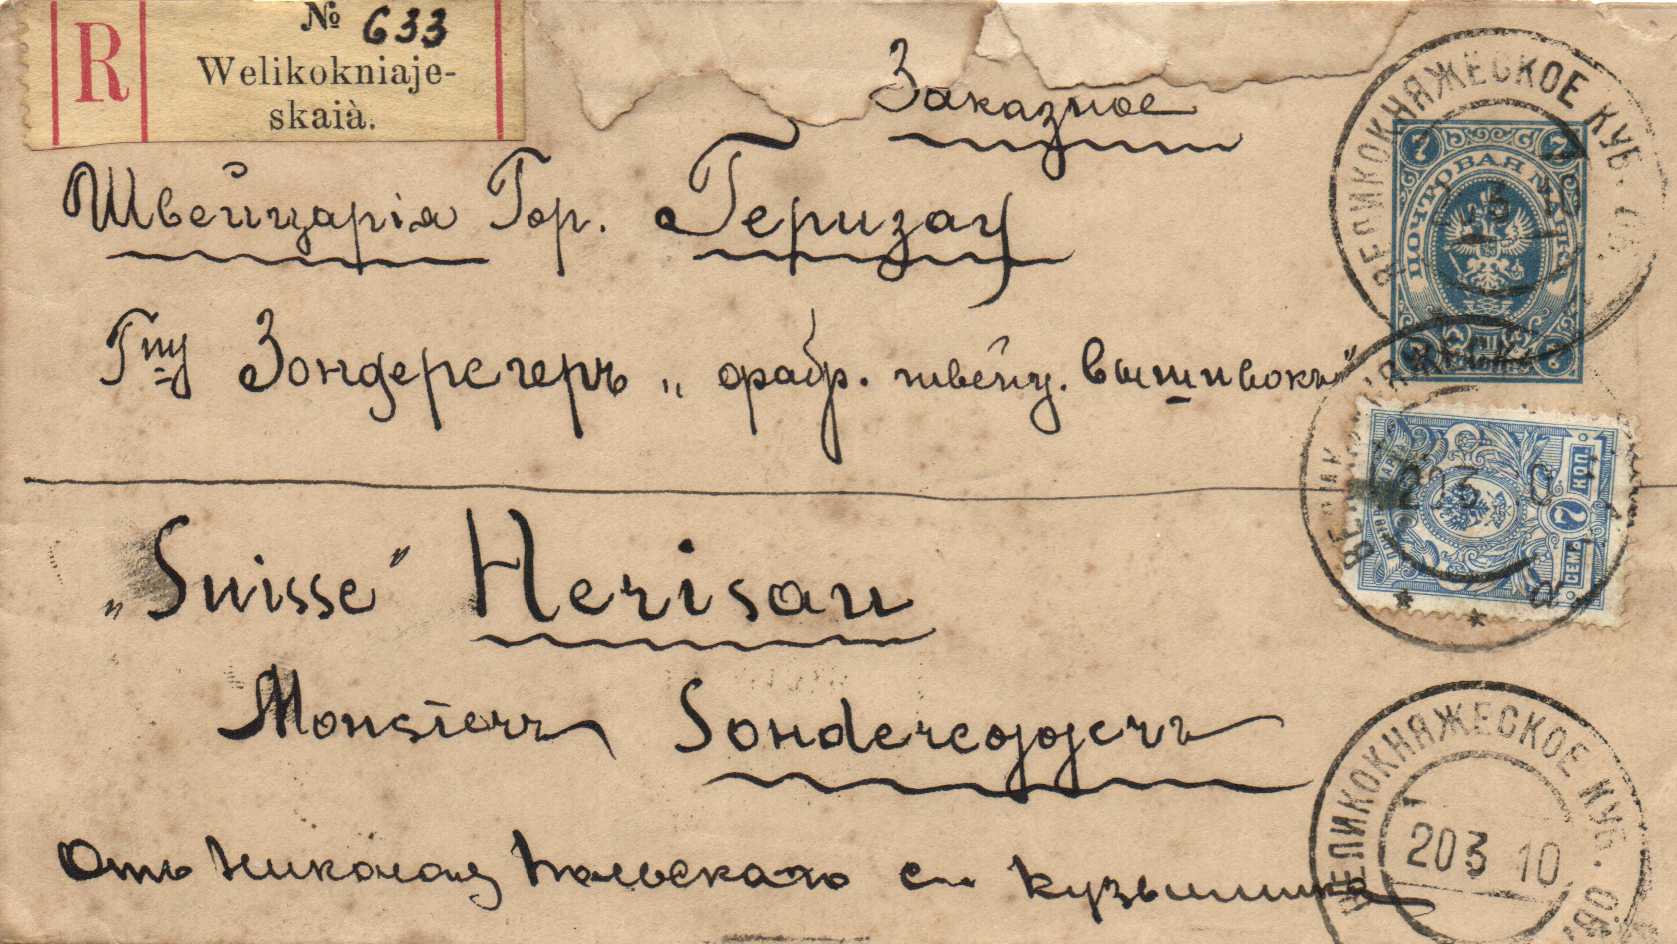 R
№ 633
Welikokniaje-
skaià.
Заказное
Швейцарія Гор. Геризау
Гну Зондерегеръ „фабр. швейц. вышивокъ"
„Suisse" Herisau
Monsieur Sonderegger
Отъ Николая Польскаго с. Кузьминка
ВЕЛИКОКНЯЖЕСКОЕ КУБ. ОБ.
7 7
ПОЧТОВАЯ МАРКА
7 7
ВЕЛИКОКНЯЖ
20 3 10
а
7 КОП.
СЕМЬ
ВЕЛИКОКНЯЖЕСКОЕ КУБ. ОБ
20 3 10